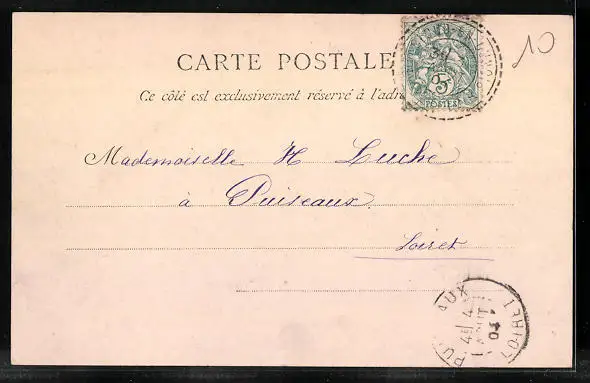 10
CARTE POSTALE
Ce côté est exclusivement réservé à l'adre
5
POSTES
Mademoiselle H Luche
à Puiseaux
Loiret
PU AUX LOIRET
4
AOUT